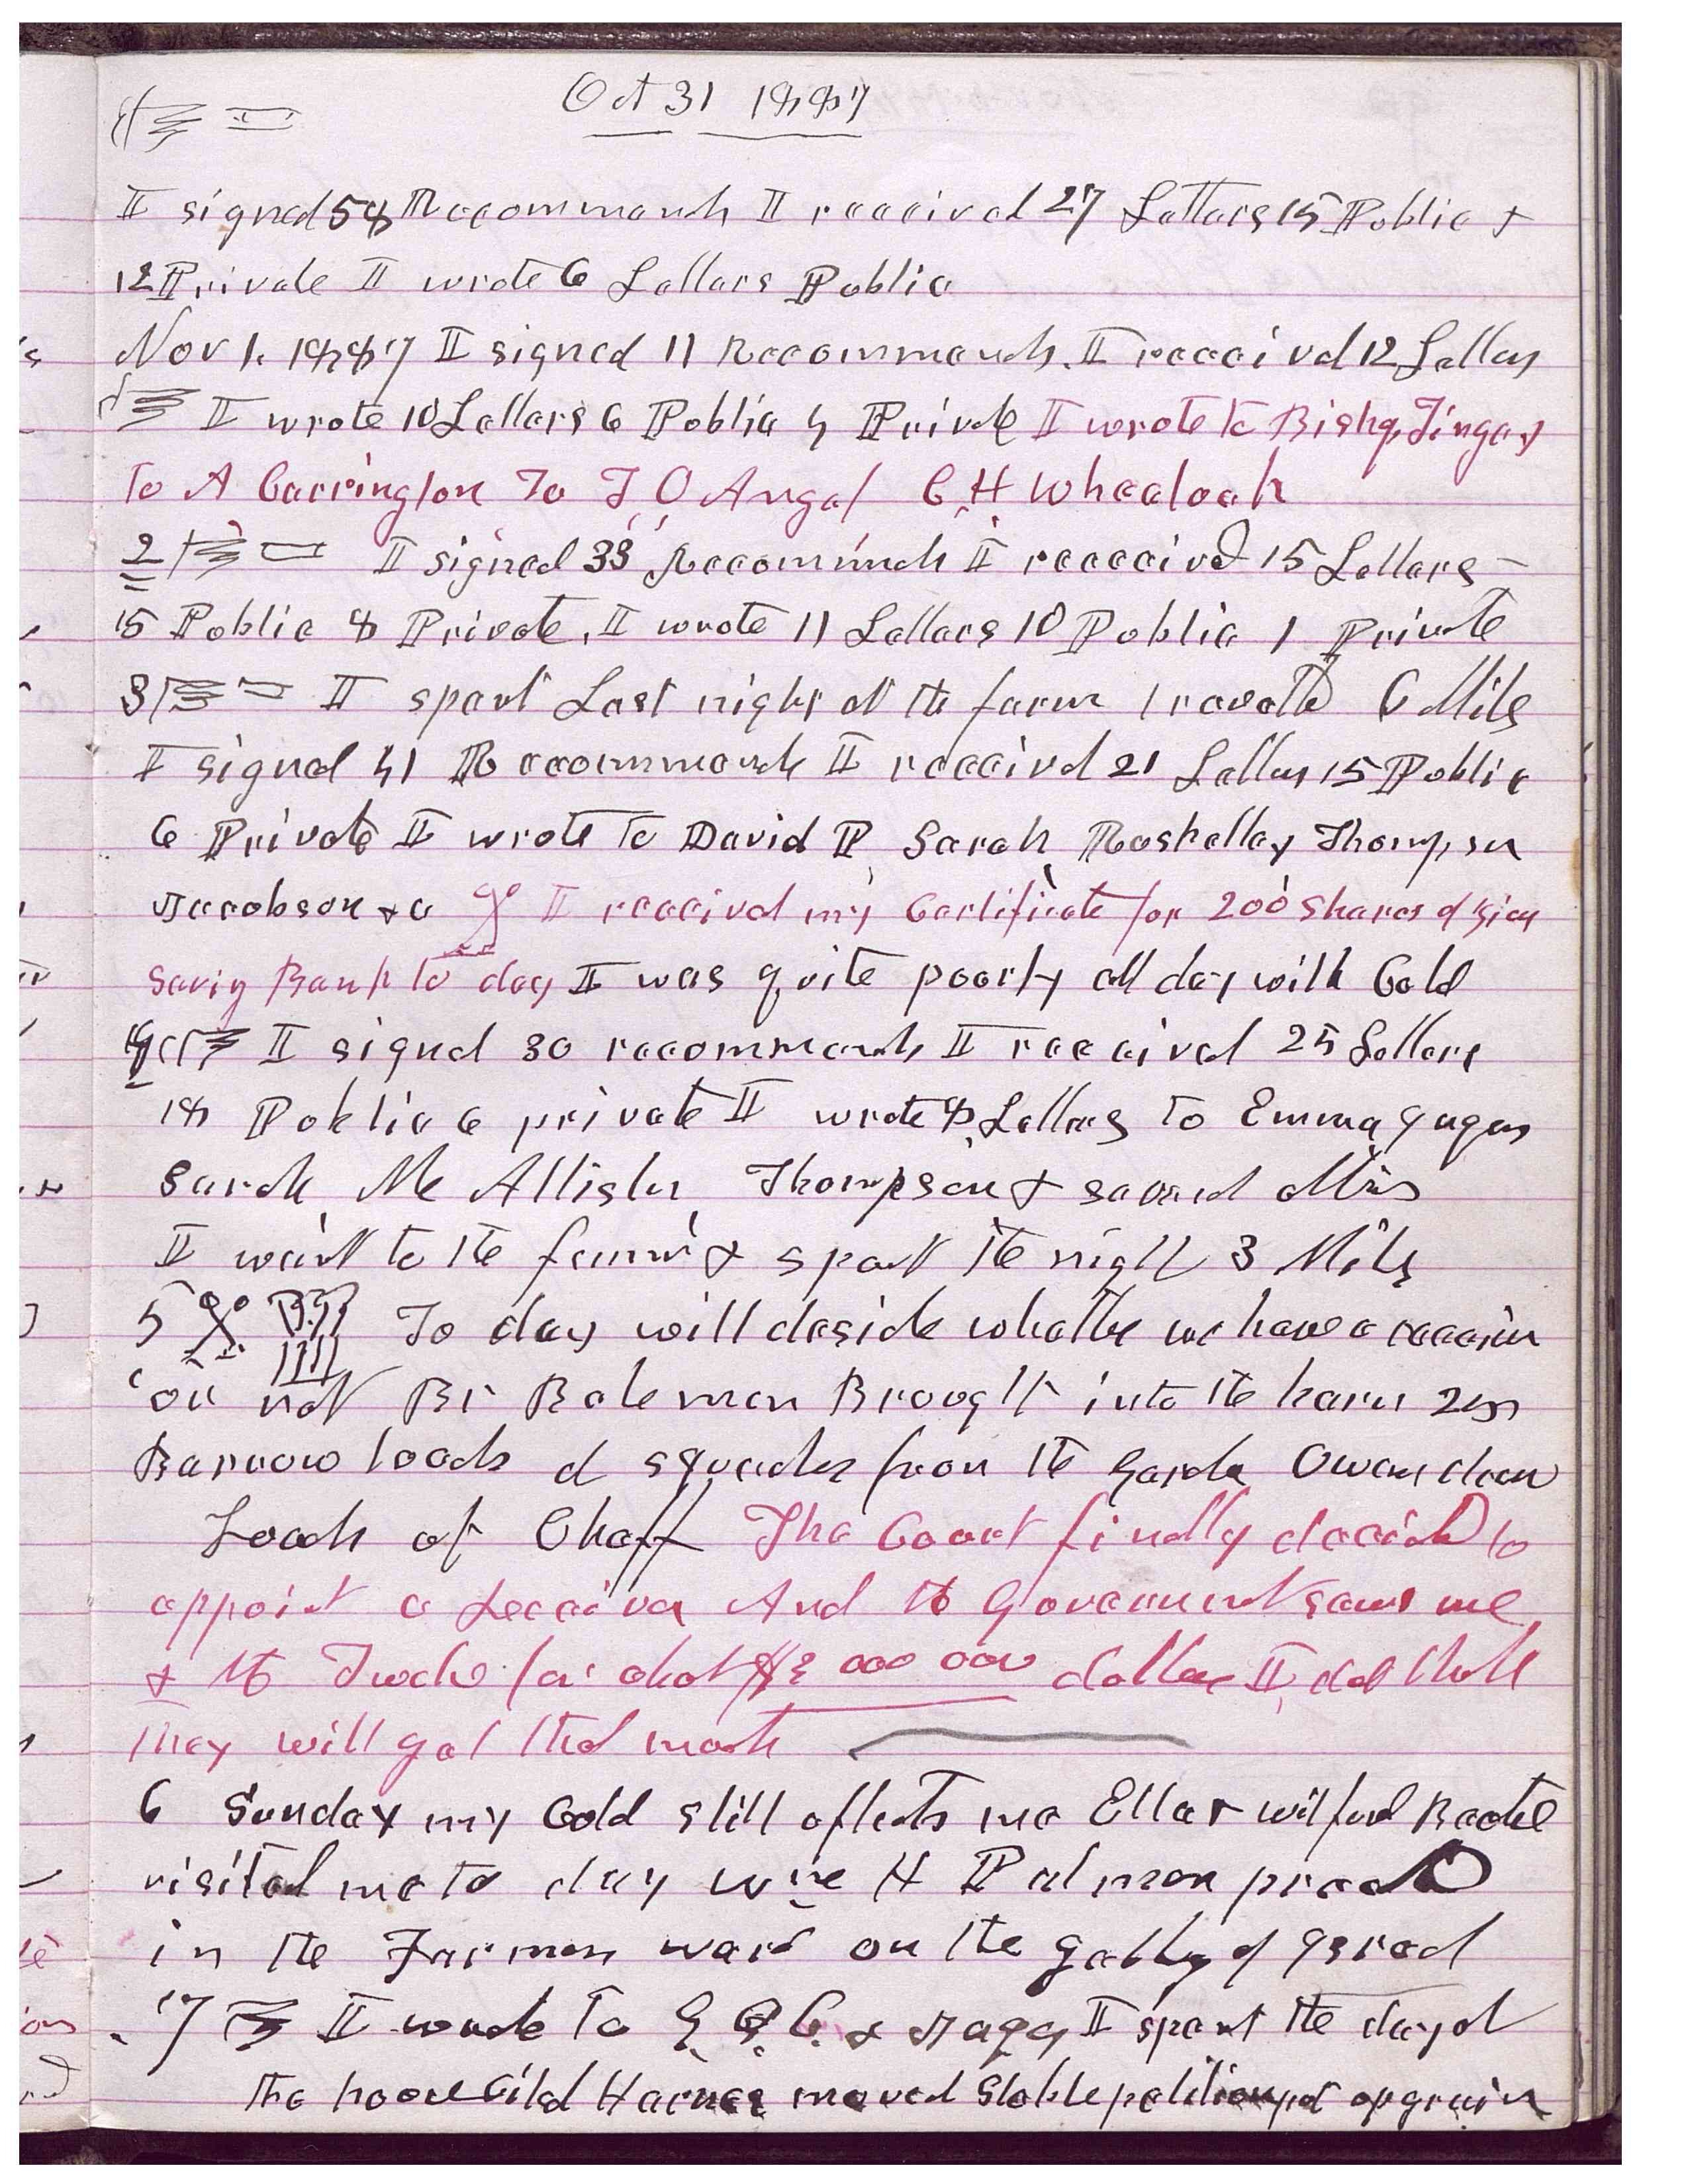 Oct 31 1887
I signed 58 Recommends I received 27 Letters 15 Public &
12 Private I wrote 6 Letters Public
Nov 1. 1887 I signed 11 Recommends. I received 12 Letters
I wrote 10 Letters 6 Public 4 Private I wrote to Bishop Tingey
To A Carrington To T O Angel C H Wheelock
2 I signed 33 Recommends I receceived 15 Letters
15 Public 8 Private, I wrote 11 Letters 10 Public 1 Private
3 I spent Last night at the farm travelled 6 Miles
I signed 41 Recommends I received 21 Letters 15 Public
6 Private I wrote to David P, Sarah, Roskelley Thompson
Jacobson &c I received my Certificate for 200 Shares of Zion
Saving Bank to day I was quite poorly all day with Cold
4 I signed 30 recommends I received 25 Letters
18 Public 6 private I wrote 8 Letters to Emma
Sarah, McAllister, Thompson & several others
I went to the farm & spent the night 3 Miles
5 To day will deside whether we have a receiver
or not Br Bateman Brought into the barn
Barrow loads of squashes from the Garden Owen
Loads of Chaff The Court finally decided to
appoint a Receiver And the Government sues me
& the Twelve for about $3 000 000 dollars I dout
they will get that much
6 Sunday my Cold still aflicts me Wilford
visited me to day Wm H Palmer preached
in the Farmers ward on the gathering of Israel
7 I wrote to & I spent the day at
the house moved Stable